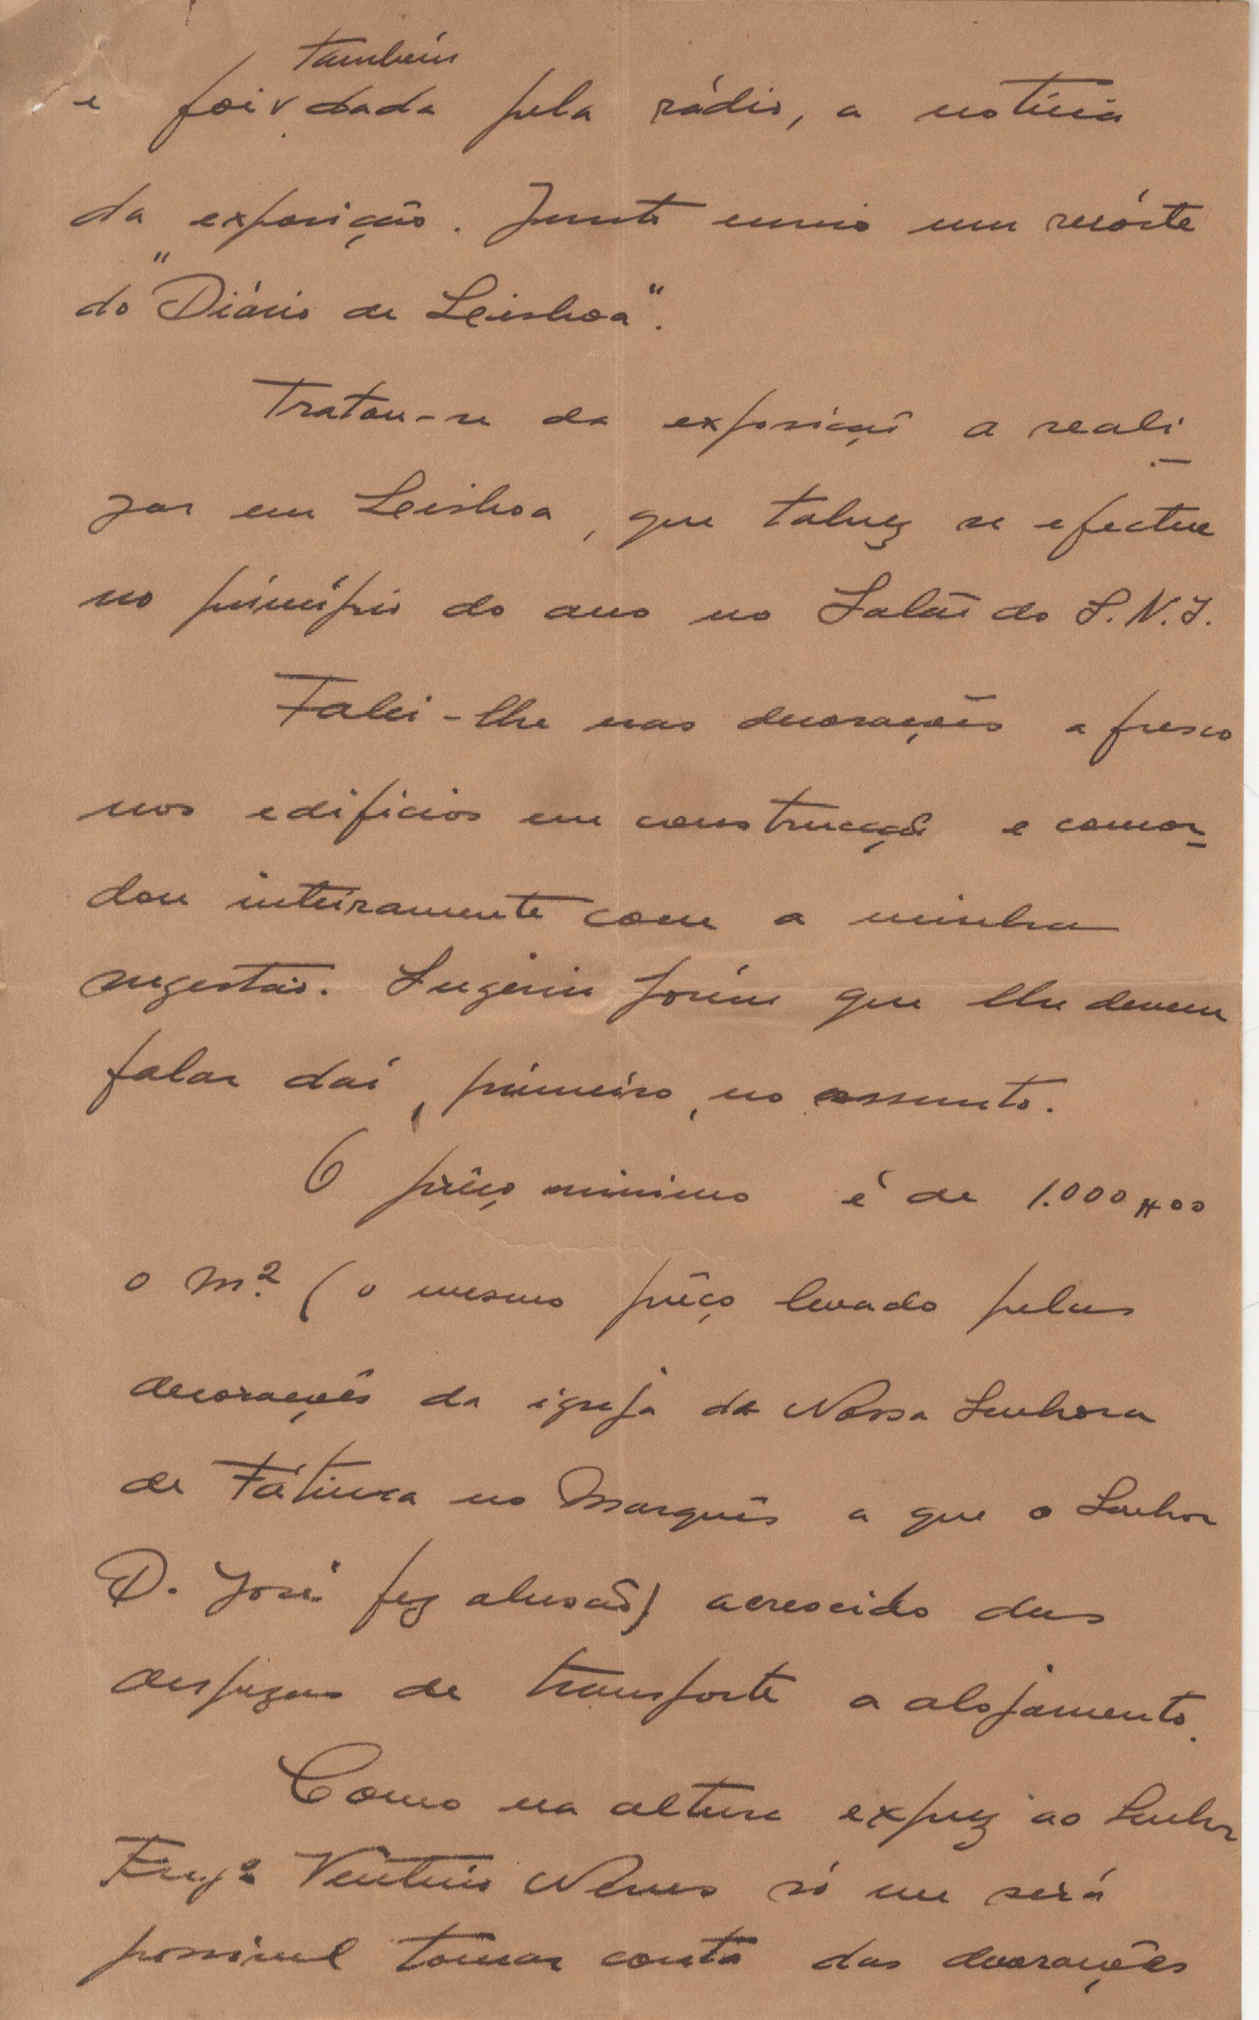 também
e foi v dada pela rádio, a notícia
da exposição. Junto envio um recórte
do "Diário de Leisboa".
Tratou-se da exposição a reali-
zar em Leisboa, que talvez se efectue
no princípio do ano no Salão do S.N.I.
Falei-lhe nas decorações a fresco
nos edificios em construcção e concor-
dou inteiramente com a minha
sugestão. Sugeriu porém que lhe devem
falar daí, primeiro, no assunto.
O prêço minimo é de 1.000$00
o m². (o mesmo prêço levado pelas
decorações da igreja da Nossa Senhora
de Fátima no Marquês a que o Senhor
D. José fez alusão) acrescido das
despezas de transporte a alojamento.
Como na altura expuz ao Senhor
Engº Neves só me será
possivel tomar conta das decorações